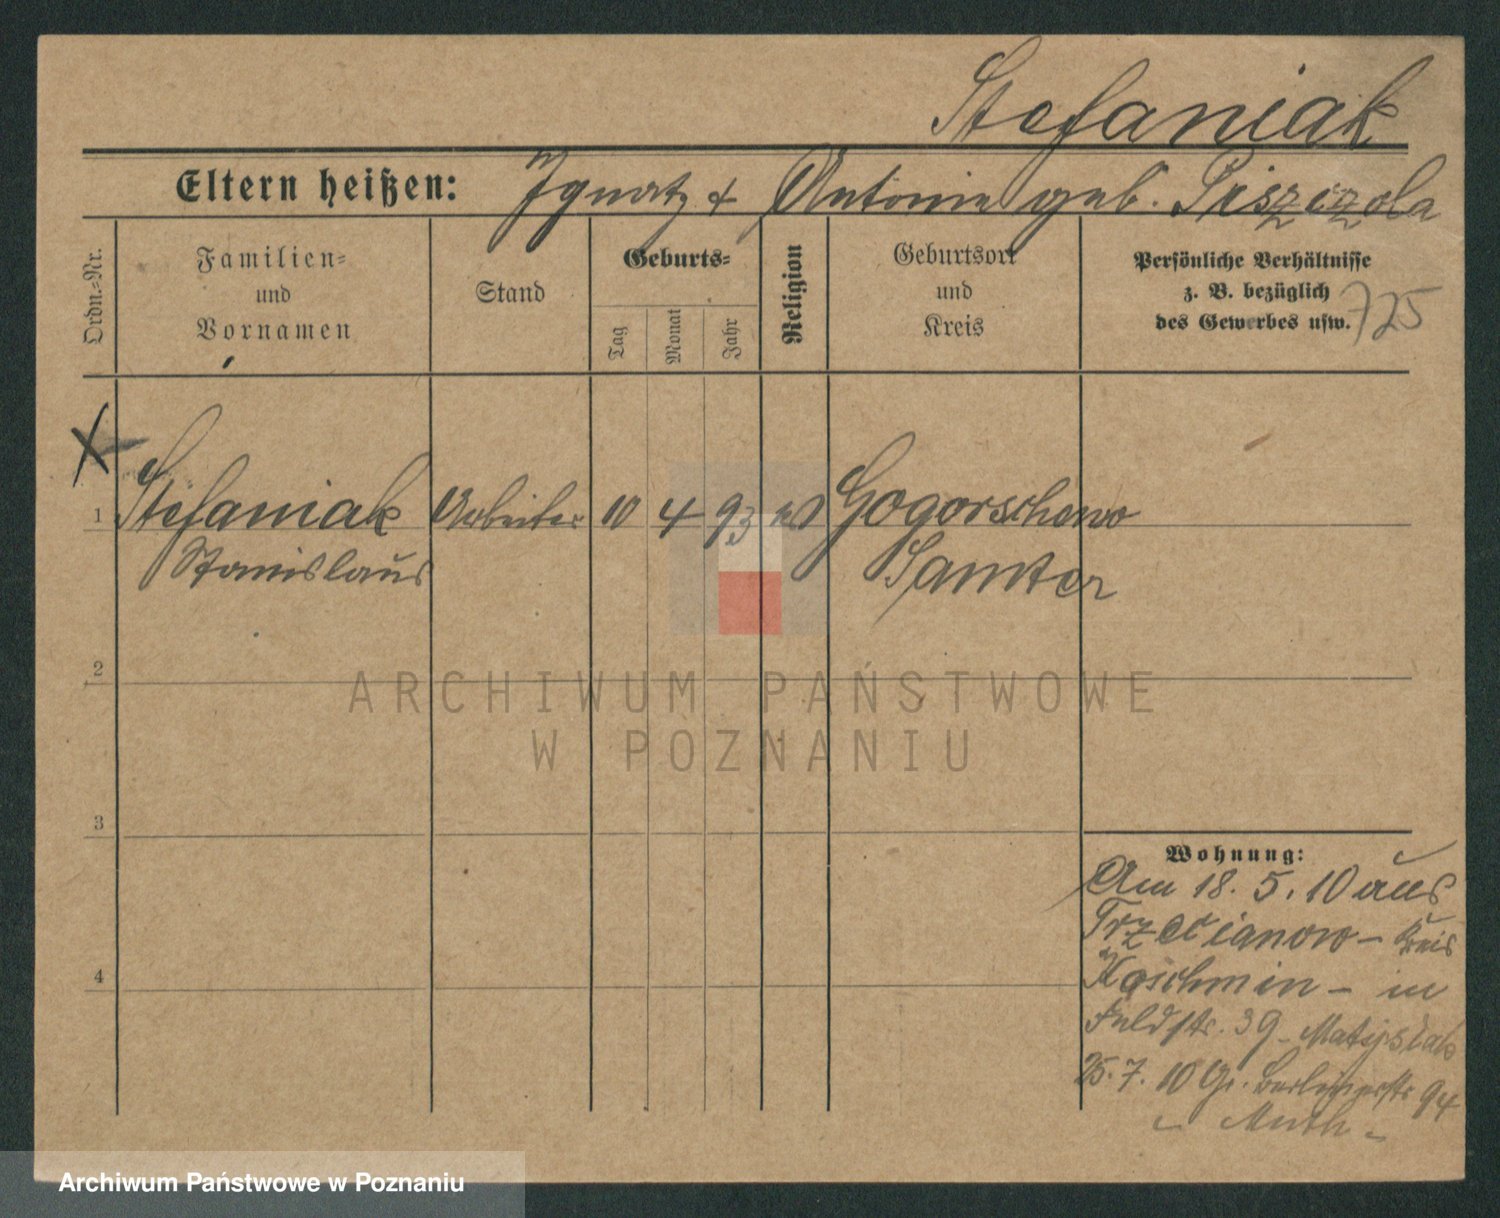 Stefaniak
Eltern heißen: Ignatz + Antonie geb. Piszczola
Ordn.-Nr.
Familien-
und
Vornamen
Stand
Geburts-
Tag
Monat
Jahr
Religion
Geburtsort
und
Kreis
Persönliche Verhältnisse
z. B. bezüglich
des Gewerbes usw.
725
1 Stefaniak Arbeiter 10 4 93 Gogorschewo
Stanislaus Samter
2
ARCHIWUM PAŃSTWOWE
W POZNANIU
3
Wohnung:
Am 18. 5. 10 aus
Trzecianowo - Kreis
4
Koschmin - in
Feldstr. 39 - Matysiak
25. 7. 10 Gr. Berlinerstr 94
- Muth -
Archiwum Państwowe w Poznaniu